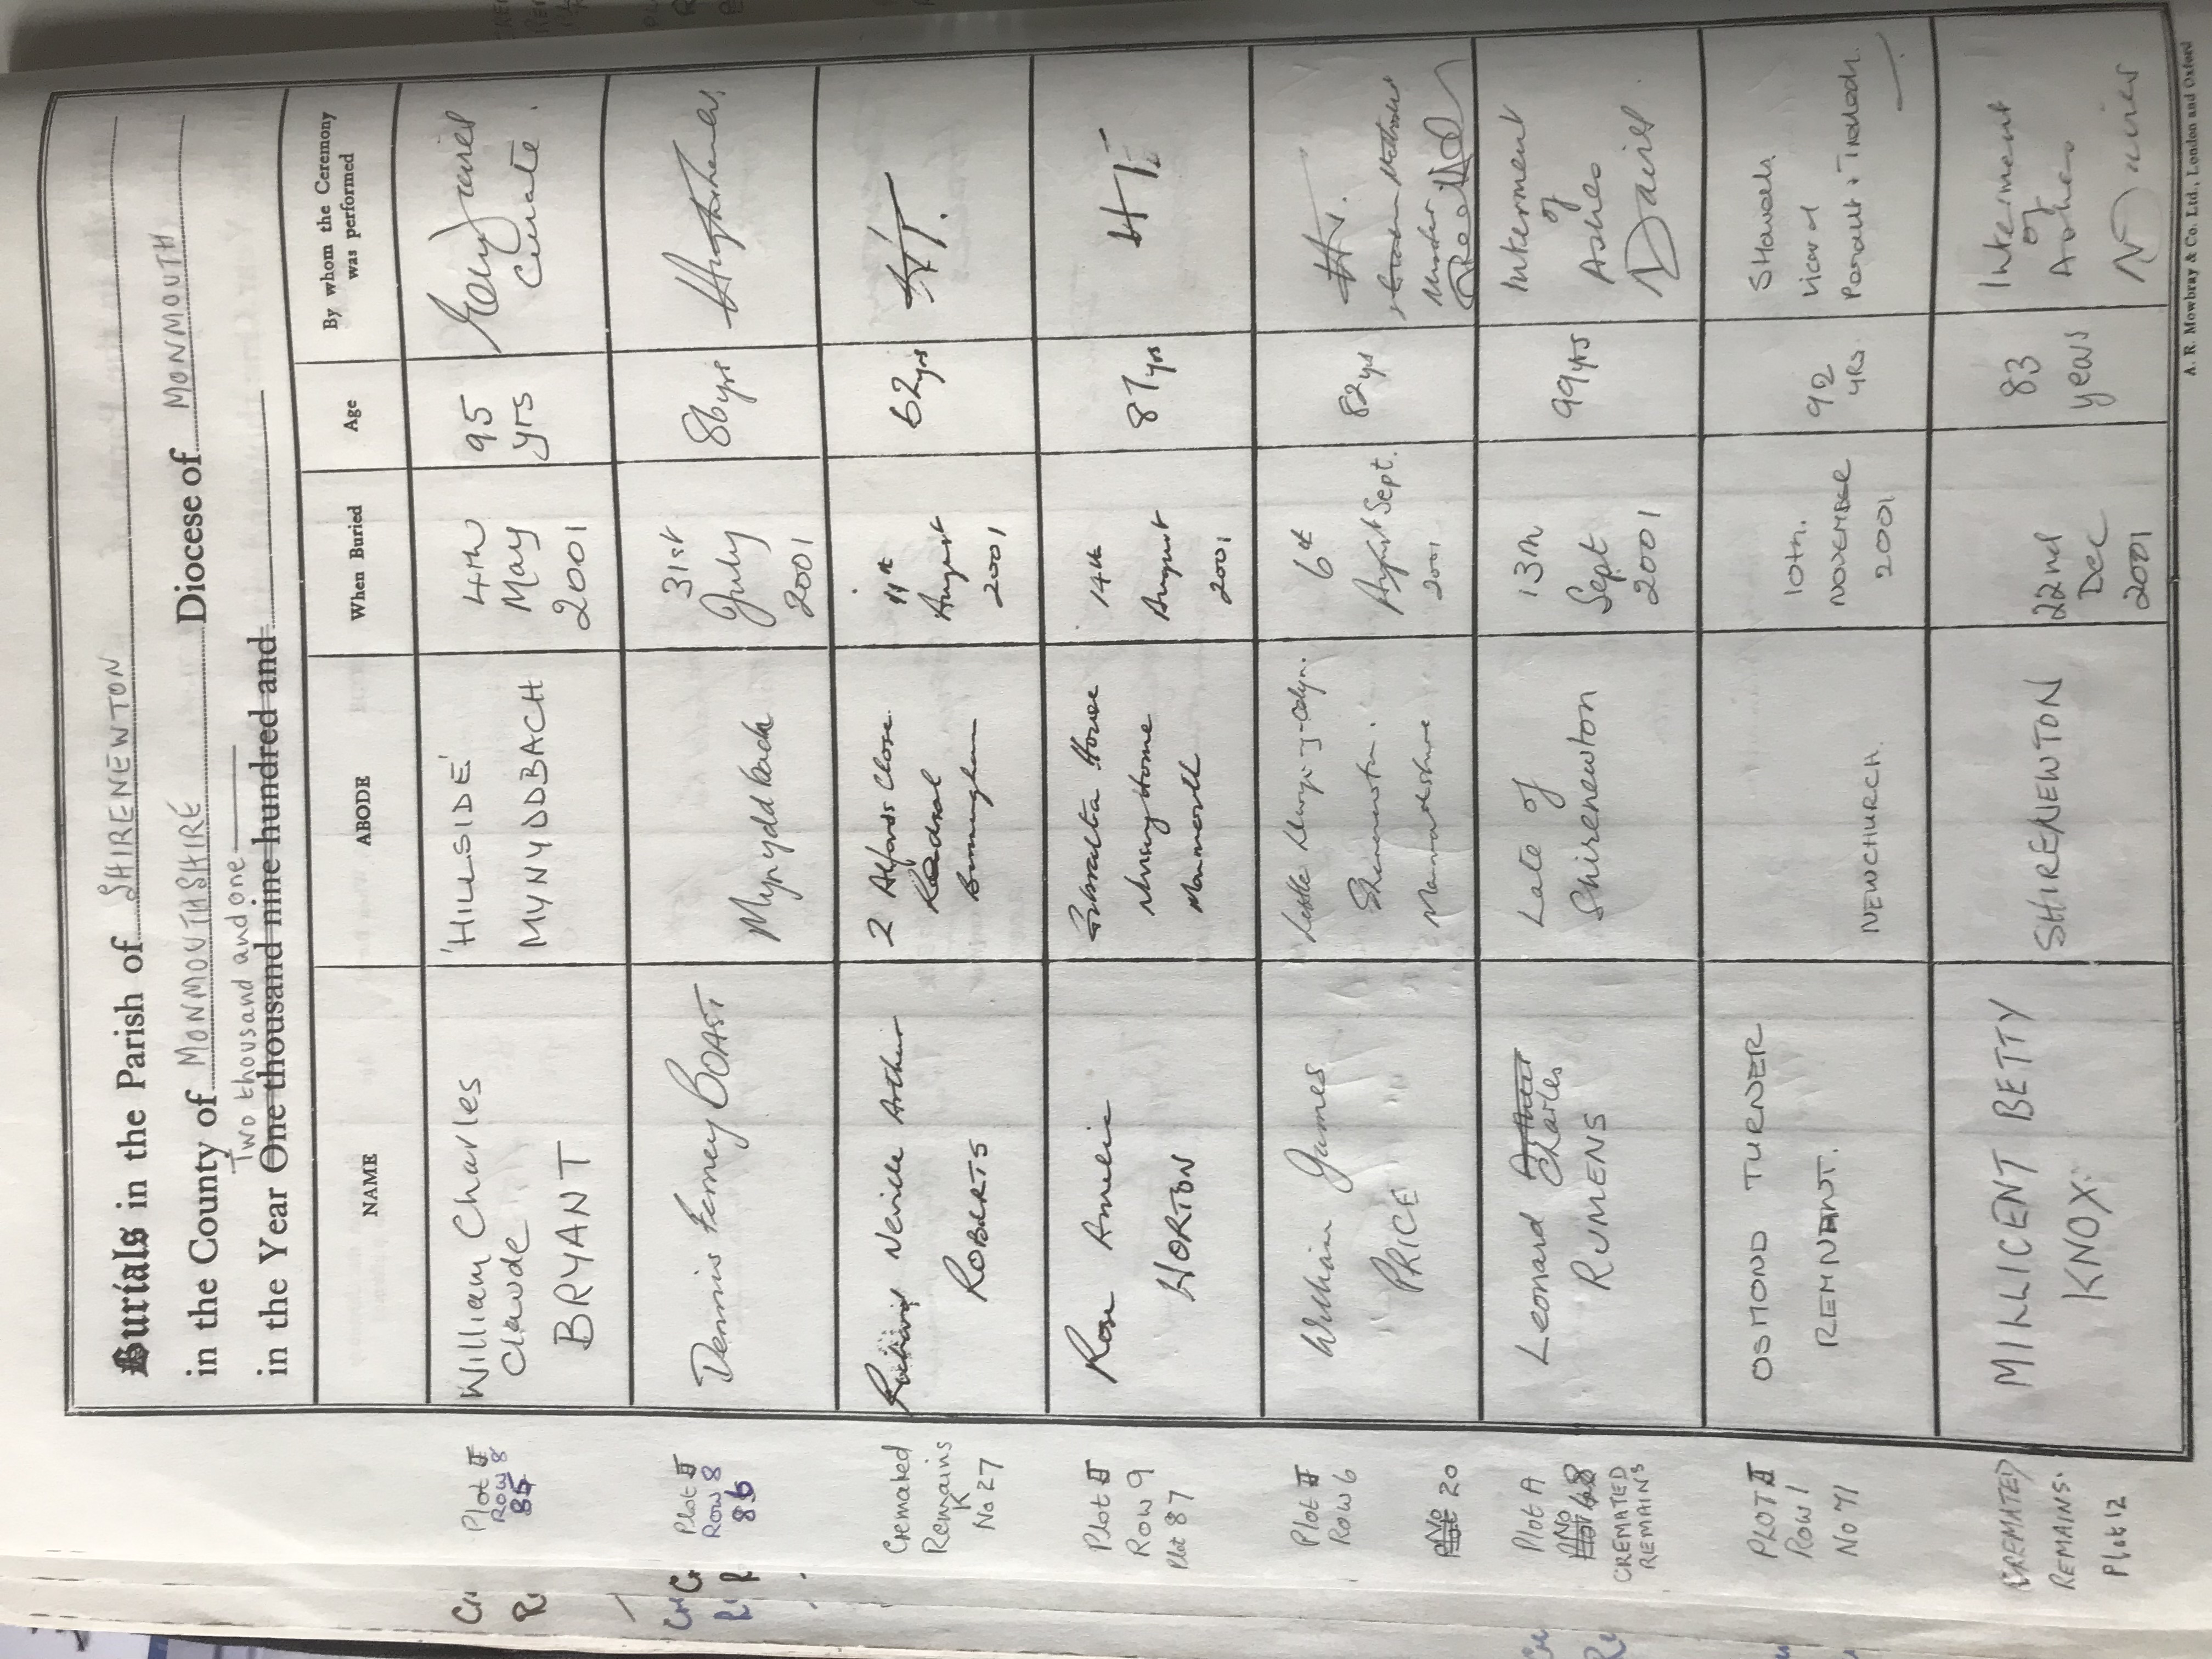 Burials in the Parish of SHIRENEWTON
in the County of MONMOUTHSHIRE Diocese of MONMOUTH
Two thousand and one
in the Year One thousand nine hundred and
NAME ABODE When Buried Age By whom the Ceremony was performed
Plot II
Row 8
85
William Charles
Claude
BRYANT
'HILLSIDE'
MYNYDDBACH
4th
May
2001
95
yrs
Curate.
Plot II
Row 8
86
Dennis Ferney BOAST
Mynydd Bach
31st
July
2001
86 yrs
Cremated
Remains
K
No 27
Richard Neville Arthur
ROBERTS
2 Close
Birmingham
11th
August
2001
62 yrs
HT.
Plot II
Row 9
Plot 87
Rose Amelia
HORTON
Gibraltar House
Nursing Home
Monmouth
14th
August
2001
87 yrs
HT
Plot II
Row 6
No 20
William James
PRICE
Little
Shirenewton.
Monmouthshire
6th
August Sept.
2001
82 yrs
HT.
Plot A
No 68
CREMATED
REMAINS
Leonard Arthur
Charles
RUMENS
Late of
Shirenewton
13th
Sept
2001
99 yrs
Interment
of
Ashes
Davies
PLOT II
Row 1
No 71
OSMOND TURNER
REMNANT.
NEWCHURCH.
10th.
NOVEMBER
2001
92
YRS.
Vicar of
CREMATED
REMAINS.
Plot 12
MILLICENT BETTY
KNOX.
SHIRENEWTON
22nd
Dec
2001
83
years
Interment
of
Ashes
Davies
A. R. Mowbray & Co. Ltd., London and Oxford